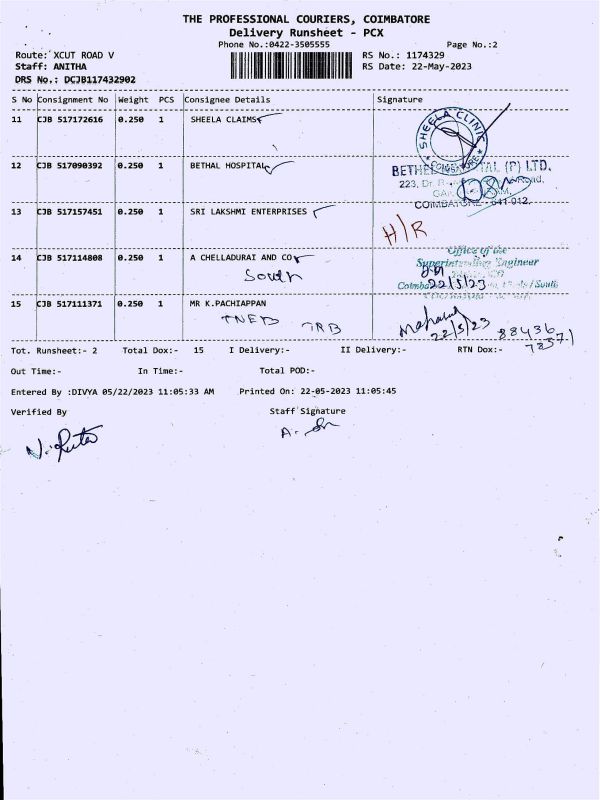 THE PROFESSIONAL COURIERS, COIMBATORE
Delivery Runsheet - PCX
Phone No.:0422-3505555 Page No.:2
Route: XCUT ROAD V RS No.: 1174329
Staff: ANITHA RS Date: 22-May-2023
DRS No.: DCJB117432902
S No Consignment No Weight PCS Consignee Details Signature
11 CJB 517172616 0.250 1 SHEELA CLAIMS
SHEELA CLINIC
12 CJB 517090392 0.250 1 BETHAL HOSPITAL
(P) LTD.
223, Dr.
COIMBATORE - 641 012.
13 CJB 517157451 0.250 1 SRI LAKSHMI ENTERPRISES
H/R
14 CJB 517114808 0.250 1 A CHELLADURAI AND CO
South
Office of the
Superintending Engineer
22/5/23 South
15 CJB 517111371 0.250 1 MR K.PACHIAPPAN
TNEB TRB
22/5/23 88436
Tot. Runsheet:- 2 Total Dox:- 15 I Delivery:- II Delivery:- RTN Dox:-
Out Time:- In Time:- Total POD:-
Entered By :DIVYA 05/22/2023 11:05:33 AM Printed On: 22-05-2023 11:05:45
Verified By Staff Signature